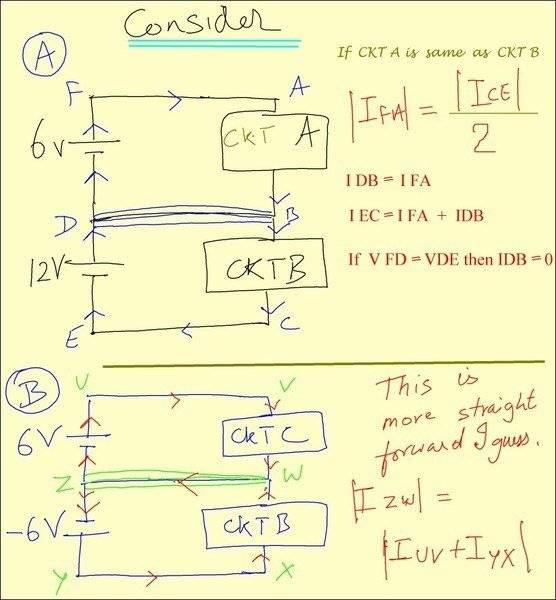 Consider
A
If CKT A is same as CKT B
F
A
6v
CKT A
|IFA| = |ICE| / 2
I DB = I FA
D
B
I EC = I FA + IDB
12V
CKTB
If V FD = VDE then IDB = 0
E
C
B
U
V
This is
more straight
forward I guess.
6V
CKTC
Z
W
|I ZW| =
|IUV + IYX|
-6V
CKTB
Y
X